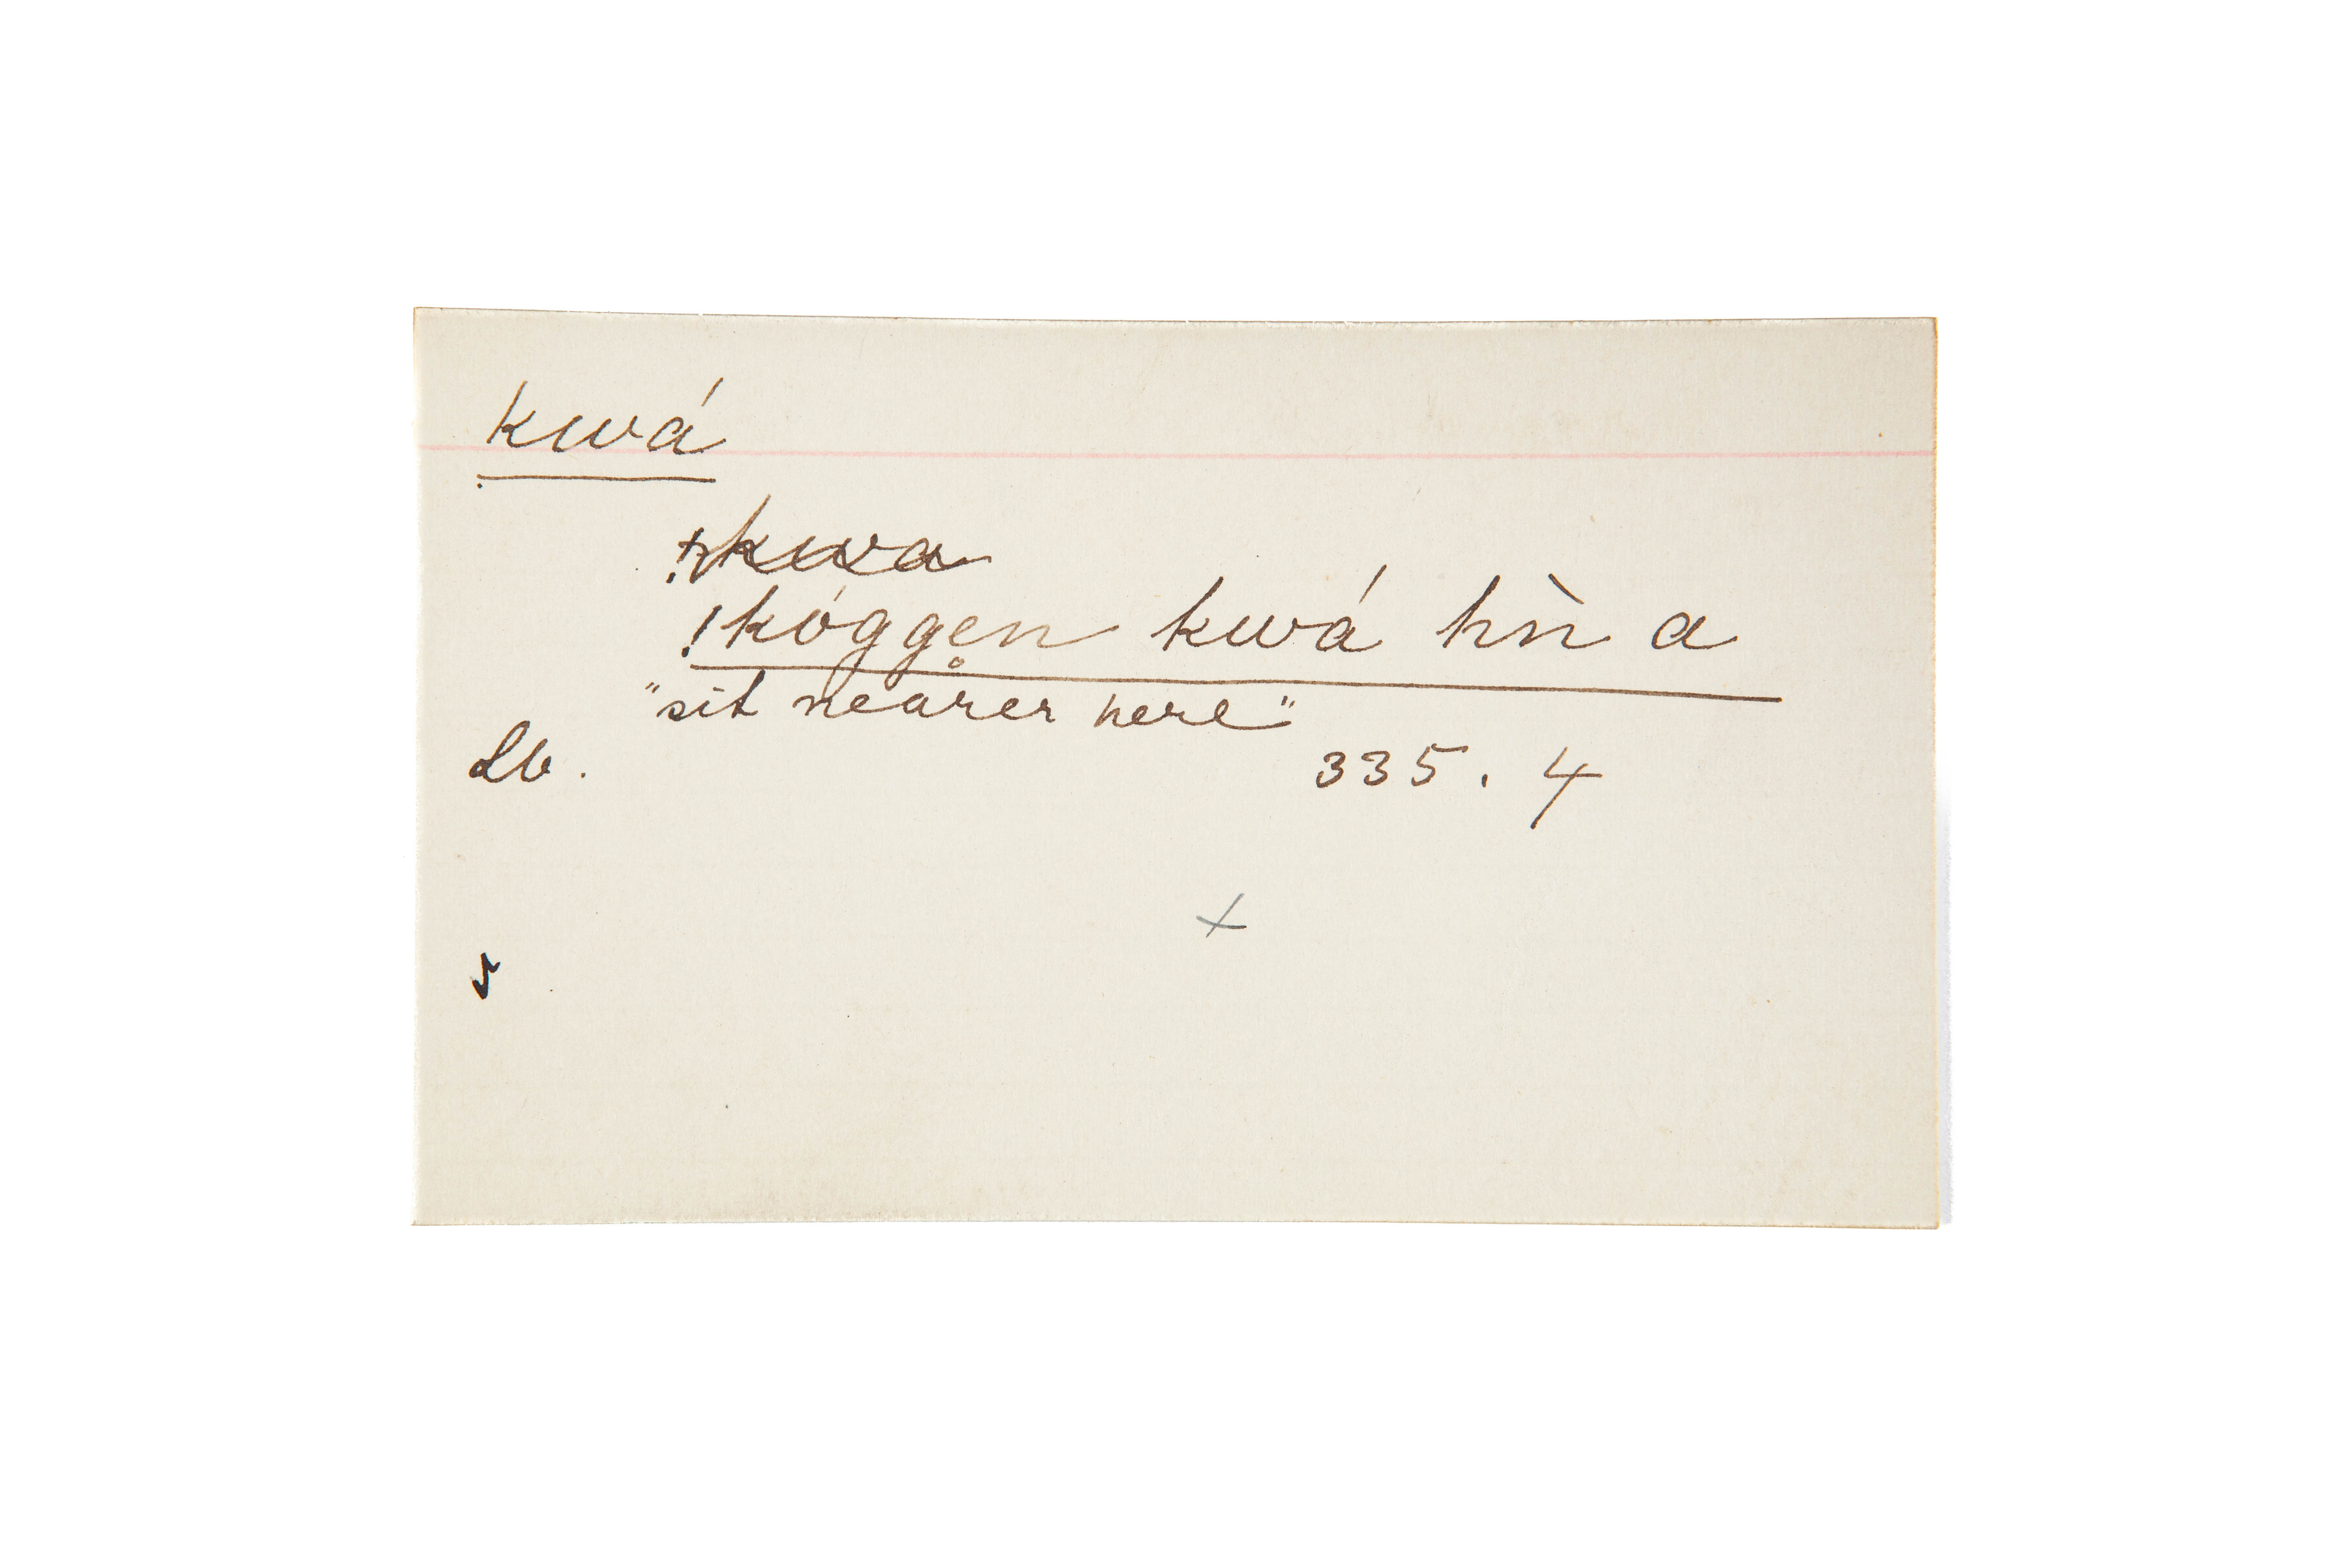 kwá
!kóggen̥ kwá hǹ a
"sit nearer here"
Lb. 335. 4
x